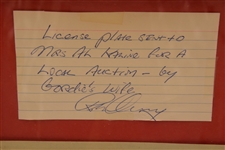 License plate sent to
Mrs Al Kaline for a
Local Auction - by
Gordie's wife